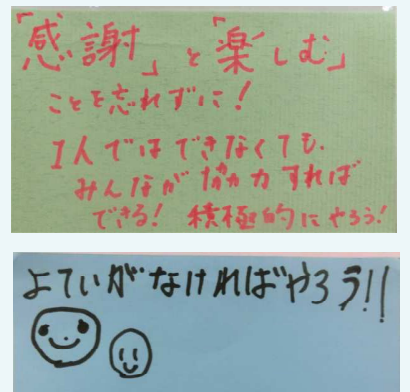 「感謝」と「楽しむ」
ことを忘れずに!
1人ではできなくても、
みんなが協力すれば
できる! 積極的にやろう!
よていがなければやろう!!